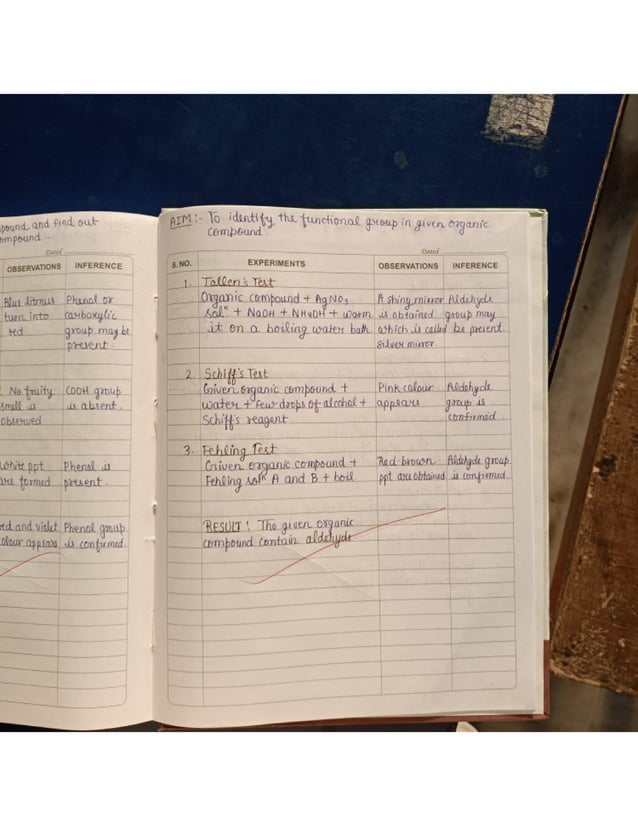 pound and find out
ompound.
Dated
OBSERVATIONS INFERENCE
Blue litmus Phenol or
turn into carboxylic
red group may be
present.
No fruity COOH group
smell is is absent.
observed
white ppt Phenol is
are formed present.
red and violet Phenol group
colour appears is confirmed.
AIM :- To identify the functional group in given organic
compound.
Dated
S. NO. EXPERIMENTS OBSERVATIONS INFERENCE
1. Tallen's Test
Organic compound + AgNO3 A shing mirror Aldehyde
solⁿ + NaOH + NH4OH + warm is obtained group may
it on a boiling water bath. which is called be present.
silver mirror.
2. Schiff's Test
Given organic compound + Pink colour Aldehyde
water + Few drops of alcohol + appears group is
Schiff's reagent confirmed
3. Fehling Test
Given organic compound + Red-brown Aldehyde group
Fehling solⁿ A and B + boil ppt are obtained is confirmed.
RESULT : The given organic
compound contain aldehyde